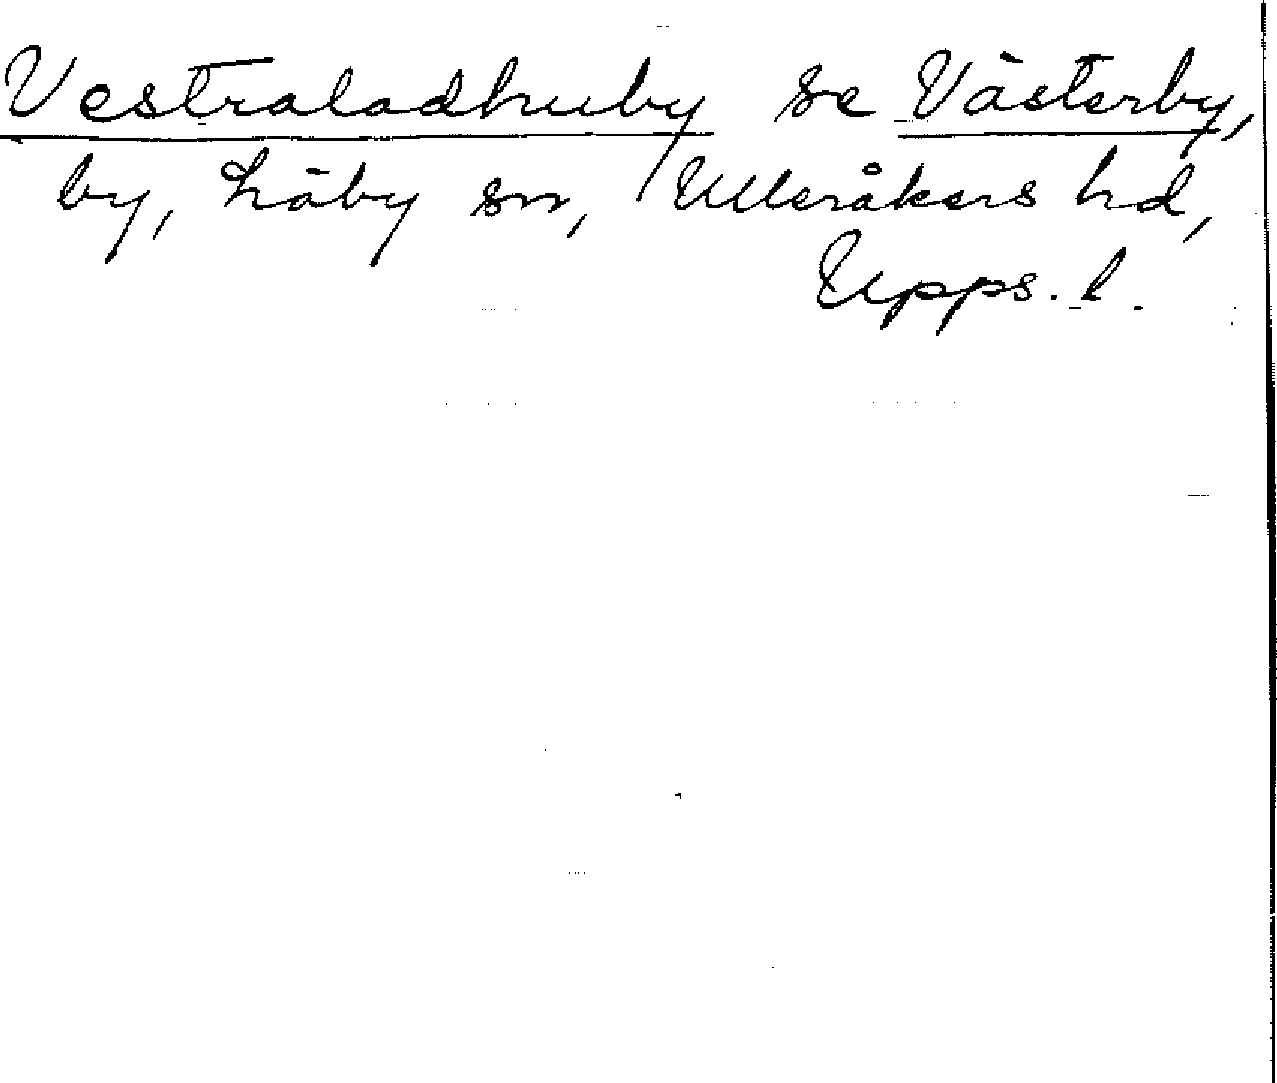 Vestraladhuby se Västerby,
by, Läby sn, Ulleråkers hd,
Upps. l.